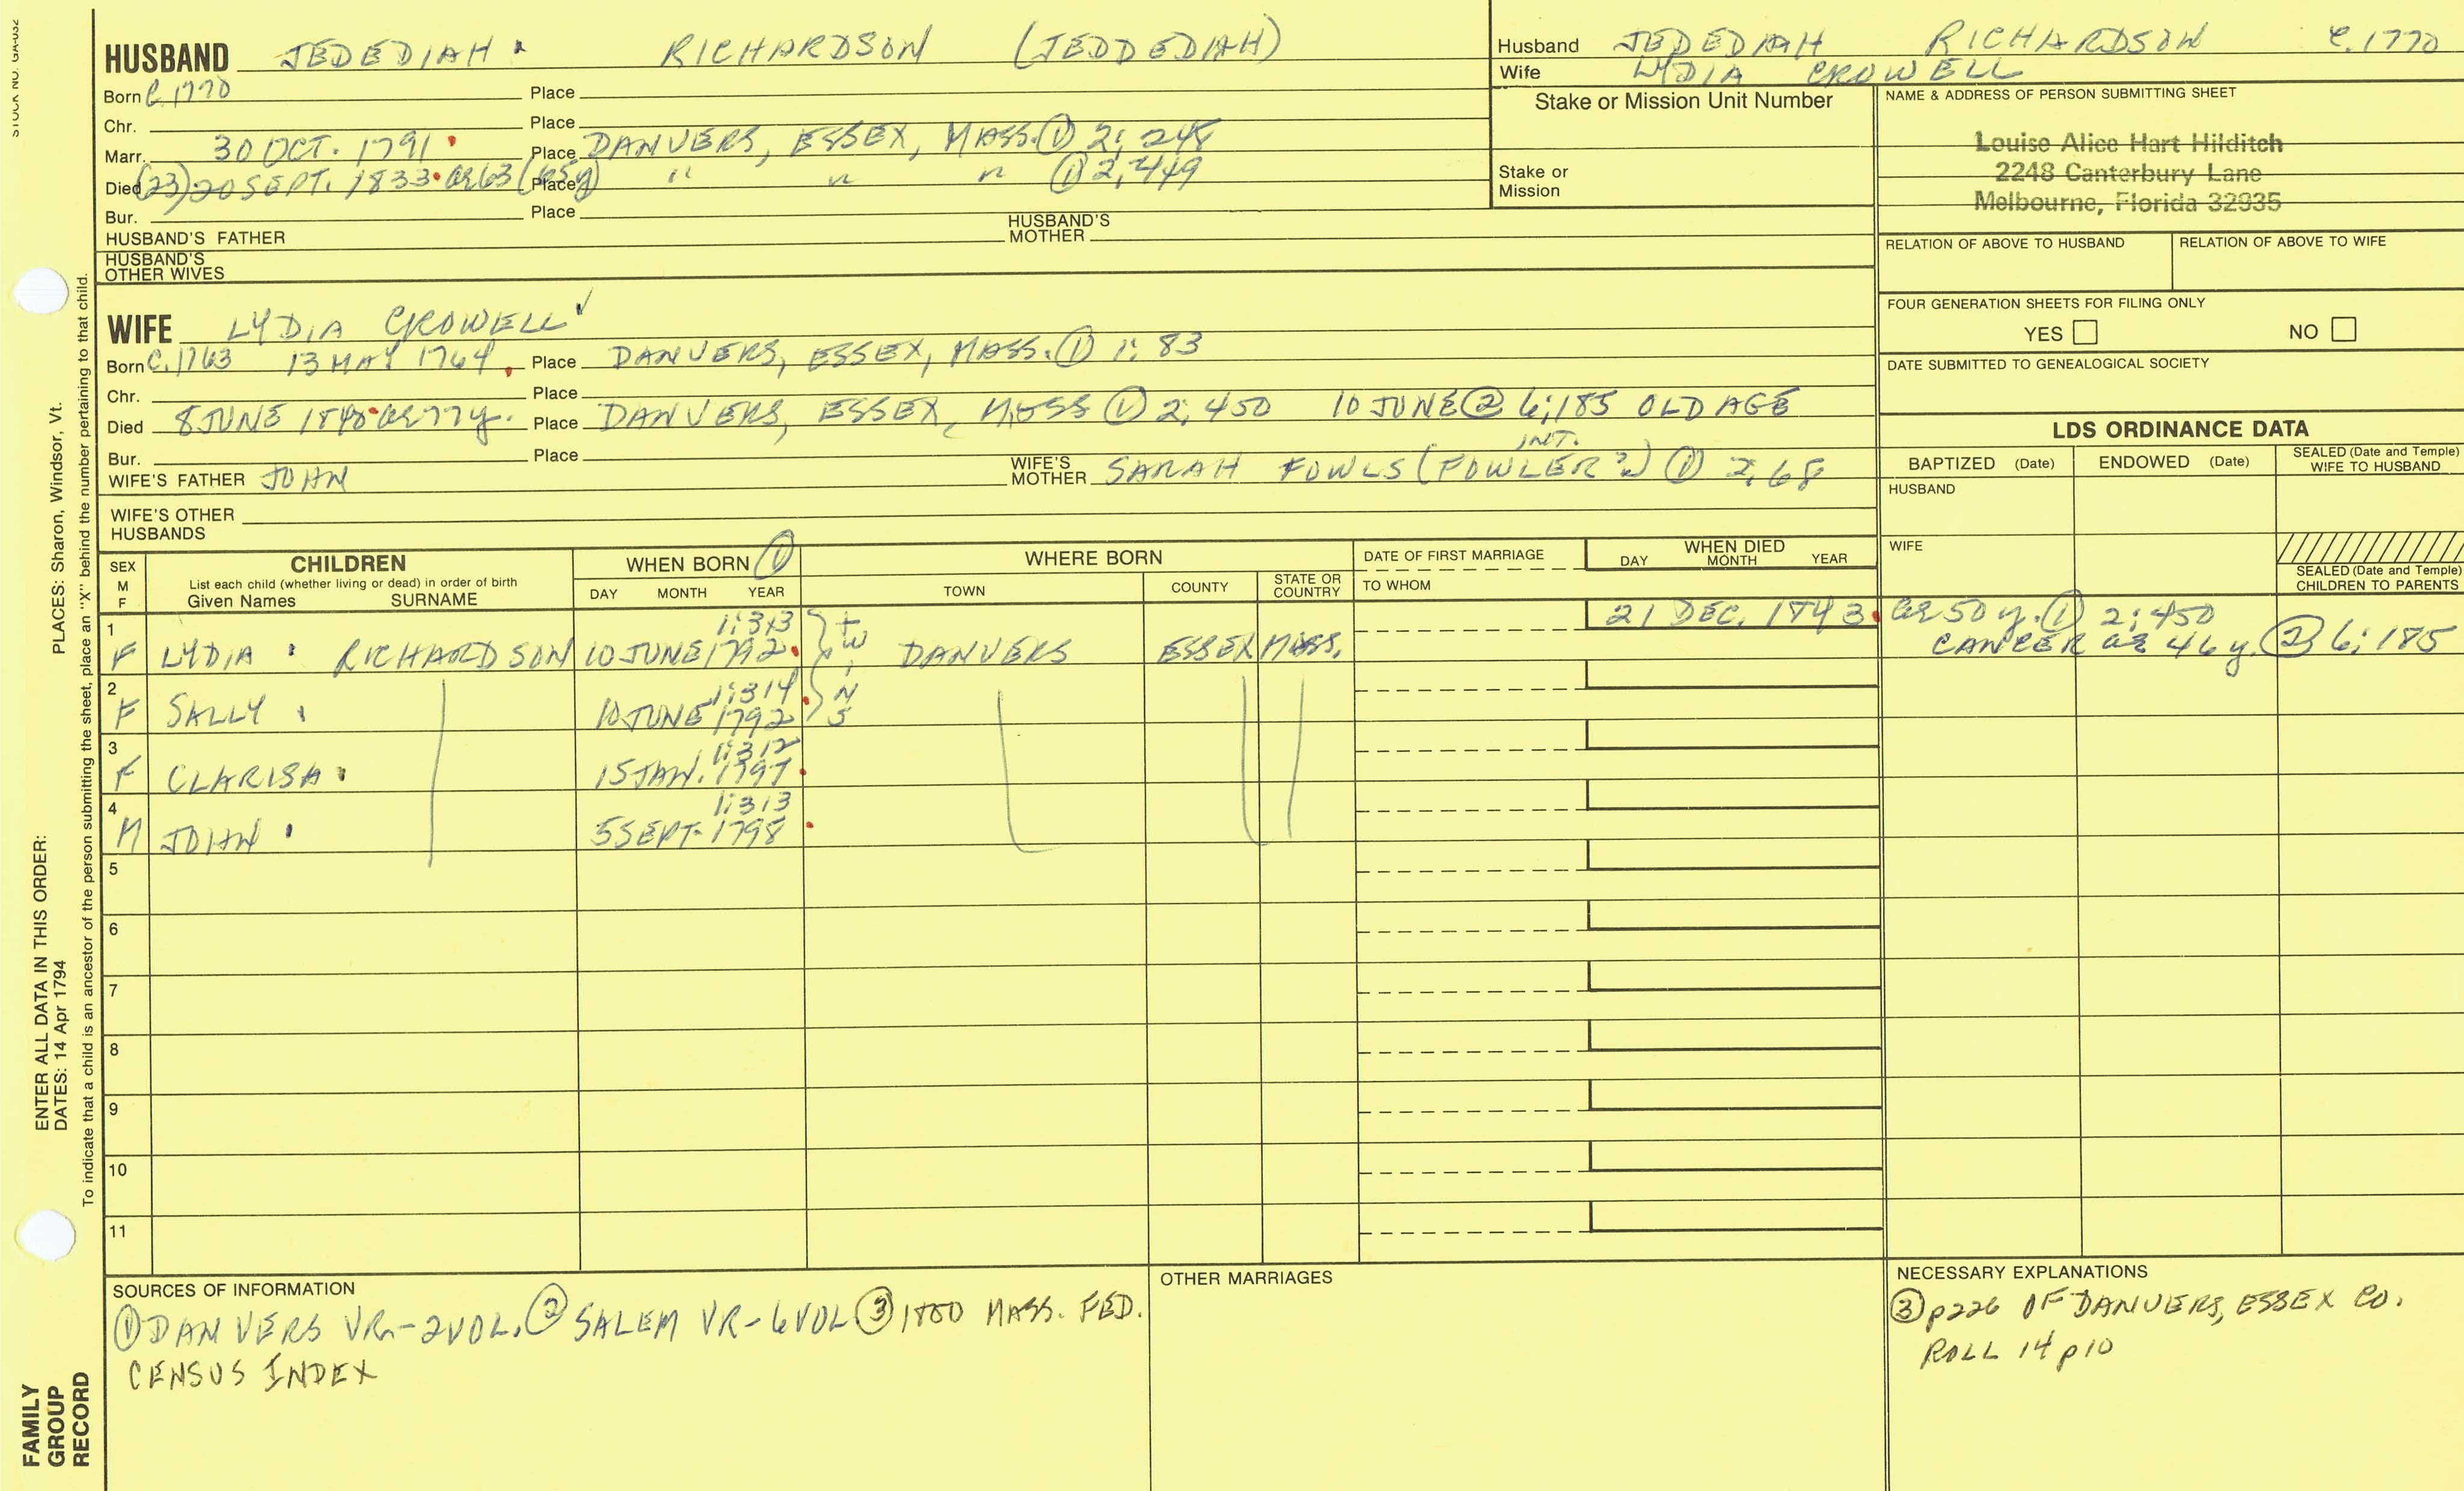 STOCK NO. GA-032
HUSBAND JEDEDIAH RICHARDSON (JEDDEDIAH)
Born C.1770 Place
Chr. Place
Marr. 30 OCT. 1791 Place DANVERS, ESSEX, MASS. ① 2; 248
Died (23) 20 SEPT. 1833 ae 63 (65y) Place " " " ① 2; 449
Bur. Place
HUSBAND'S FATHER HUSBAND'S MOTHER
HUSBAND'S OTHER WIVES
Husband JEDEDIAH RICHARDSON C.1770
Wife LYDIA CROWELL
Stake or Mission Unit Number
Stake or Mission
NAME & ADDRESS OF PERSON SUBMITTING SHEET
Louise Alice Hart Hilditch
2248 Canterbury Lane
Melbourne, Florida 32935
RELATION OF ABOVE TO HUSBAND RELATION OF ABOVE TO WIFE
FOUR GENERATION SHEETS FOR FILING ONLY
YES NO
DATE SUBMITTED TO GENEALOGICAL SOCIETY
WIFE LYDIA CROWELL ✓
Born C.1763 13 MAY 1764 Place DANVERS, ESSEX, MASS. ① 1; 83
Chr. Place
Died 8 JUNE 1840 ae 77y. Place DANVERS, ESSEX, MASS ① 2; 450 10 JUNE ② 6; 185 OLD AGE
Bur. Place
WIFE'S FATHER JOHN WIFE'S MOTHER SARAH FOWLS (FOWLER INT.) ① 2; 68
WIFE'S OTHER HUSBANDS
LDS ORDINANCE DATA
BAPTIZED (Date) ENDOWED (Date) SEALED (Date and Temple) WIFE TO HUSBAND
HUSBAND
WIFE
SEALED (Date and Temple) CHILDREN TO PARENTS
SEX M F CHILDREN List each child (whether living or dead) in order of birth Given Names SURNAME
WHEN BORN ① DAY MONTH YEAR
WHERE BORN TOWN COUNTY STATE OR COUNTRY
DATE OF FIRST MARRIAGE TO WHOM
WHEN DIED DAY MONTH YEAR
1 F LYDIA RICHARDSON 10 JUNE 1792 1; 313 TWINS DANVERS ESSEX MASS. 21 DEC. 1843 ae 50 y. ① 2; 450
CANCER ae 46 y. ② 6; 185
2 F SALLY 10 JUNE 1792 1; 314
3 F CLARISA 15 JAN. 1797 1; 312
4 M JOHN 5 SEPT. 1798 1; 313
5
6
7
8
9
10
11
SOURCES OF INFORMATION
① DANVERS VR-2VOL. ② SALEM VR-6VOL ③ 1800 MASS. FED.
CENSUS INDEX
OTHER MARRIAGES
NECESSARY EXPLANATIONS
③ p226 OF DANVERS, ESSEX CO.
ROLL 14 p10
PLACES: Sharon, Windsor, Vt.
ENTER ALL DATA IN THIS ORDER:
DATES: 14 Apr 1794
To indicate that a child is an ancestor of the person submitting the sheet, place an "X" behind the number pertaining to that child.
FAMILY
GROUP
RECORD